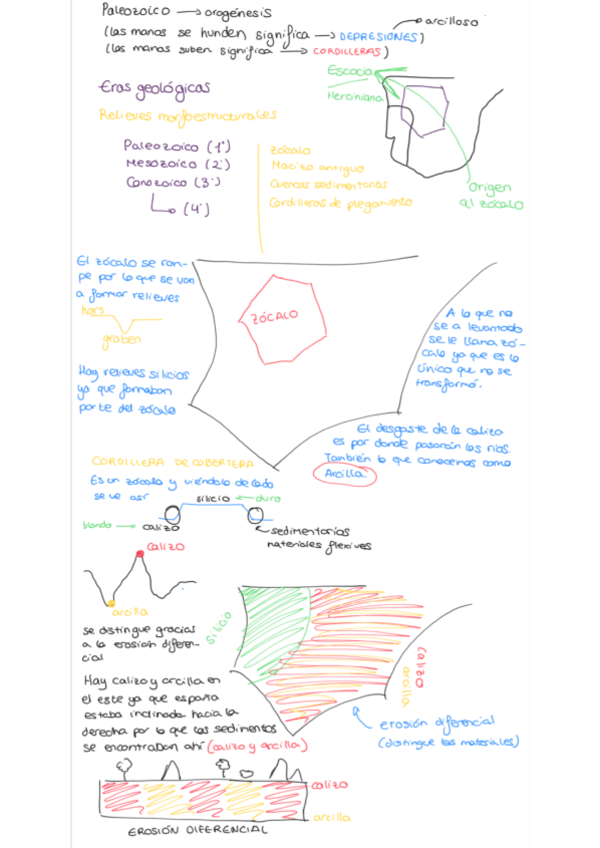 Paleozoico → orogénesis
arcilloso
(las manos se hunden significa → DEPRESIONES)
(las manos suben significa → CORDILLERAS)
Escocia
Herciniana
Origen
al zócalo
Eras geológicas
Relieves morfoestructurales
Paleozoico (1ª)
Mesozoico (2ª)
Cenozoico (3ª)
(4ª)
zócalo
Macizo antiguo
Cuencas sedimentarias
Cordilleras de plegamiento
El zócalo se rom-
pe por lo que se van
a formar relieves
hors
graben
Hay relieves silicios
ya que formaban
parte del zócalo
ZÓCALO
A lo que no
se a levantado
se le llama zó-
calo ya que es lo
único que no se
transformó.
El desgaste de la caliza
es por donde pasarán los ríos.
También lo que conocemos como
Arcilla
CORDILLERA DE COBERTERA
Es un zócalo y viéndolo de lado
se ve así
silicio ← duro
blando → calizo
← sedimentarios
materiales flexives
calizo
arcilla
se distingue gracias
a la erosión diferen-
cial
Hay calizo y arcilla en
el este ya que españa
estaba inclinada hacia la
derecha por lo que los sedimentos
se encontraban ahí (calizo y arcilla)
silicio
calizo
arcilla
erosión diferencial
(distingue los materiales)
calizo
arcilla
EROSIÓN DIFERENCIAL